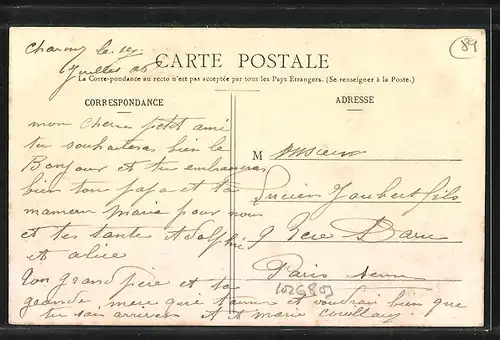 Charny le 1er
Juillet 06
CARTE POSTALE
La Correspondance au recto n'est pas acceptée par tous les Pays Etrangers. (Se renseigner à la Poste.)
CORRESPONDANCE
ADRESSE
mon cher petit ami
tu souhaiteras bien le
Bonjour et tu embrasseras
bien ton papa et ta
maman marie pour nous
et tes tante Adolphi
et alice
ton grand père et ta
grande mère qui taime et voudrai bien que
tu sois arriver A A marie
M onsieur
Lucien Joubert fils
9 Rue Daru
Paris
84